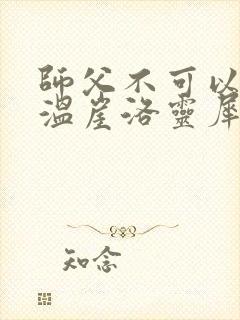 師父不可以
溫崖洛靈犀
知念